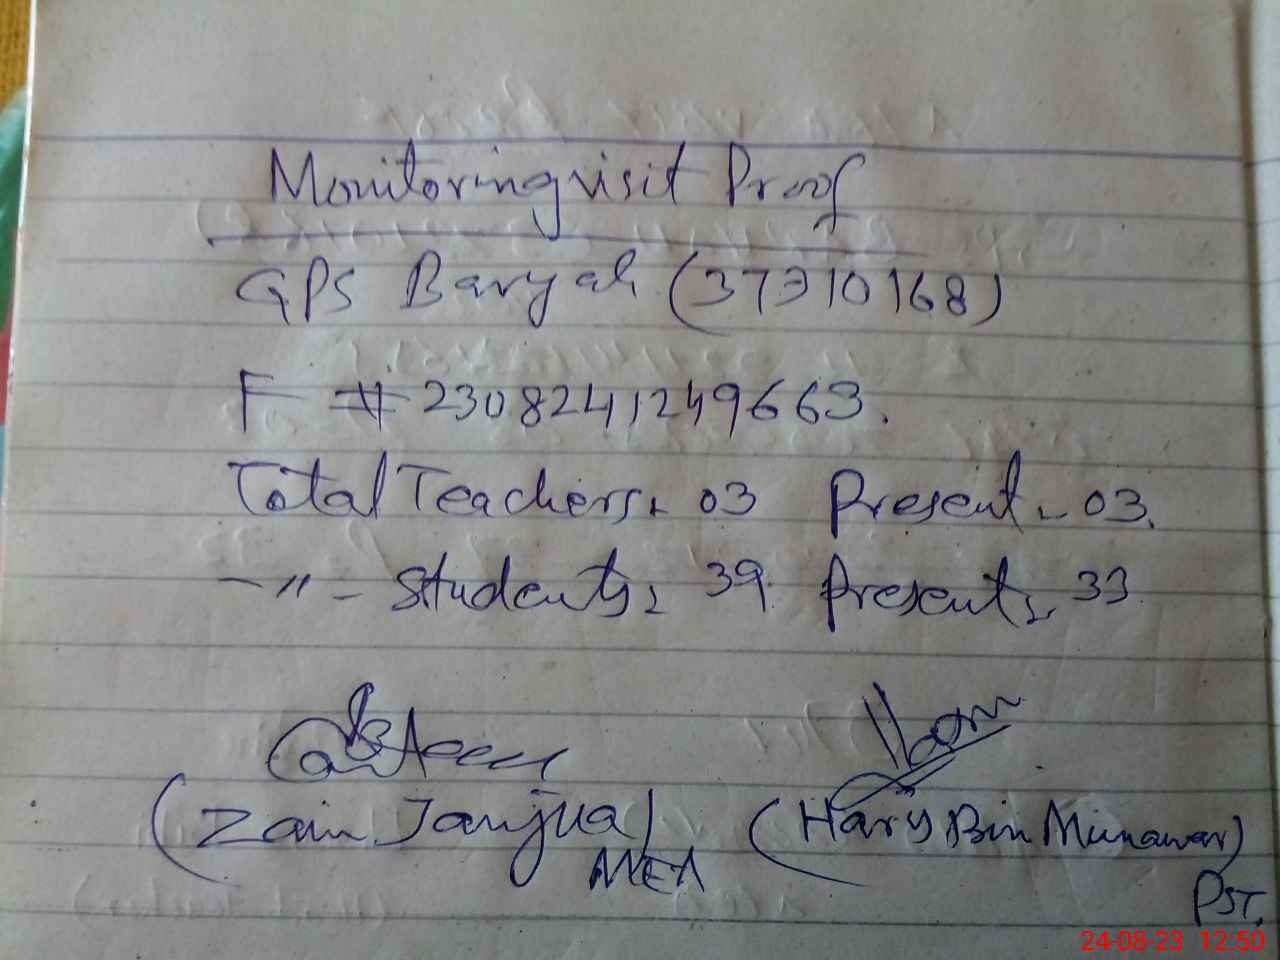 Monitoring visit Proof
GPS Baryah (37310168)
F # 2308241249663.
Total Teachers: 03 Present: 03.
-〃- Students: 39. Present: 33.
(Zain Janjua) (Harys Bin Munawar)
MEA PST.
24-08-23 12:50